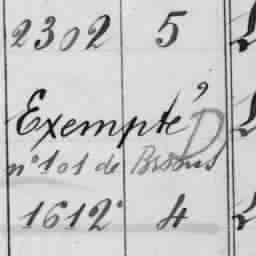 2302 5
Exempté
nº 101 de
1612 4